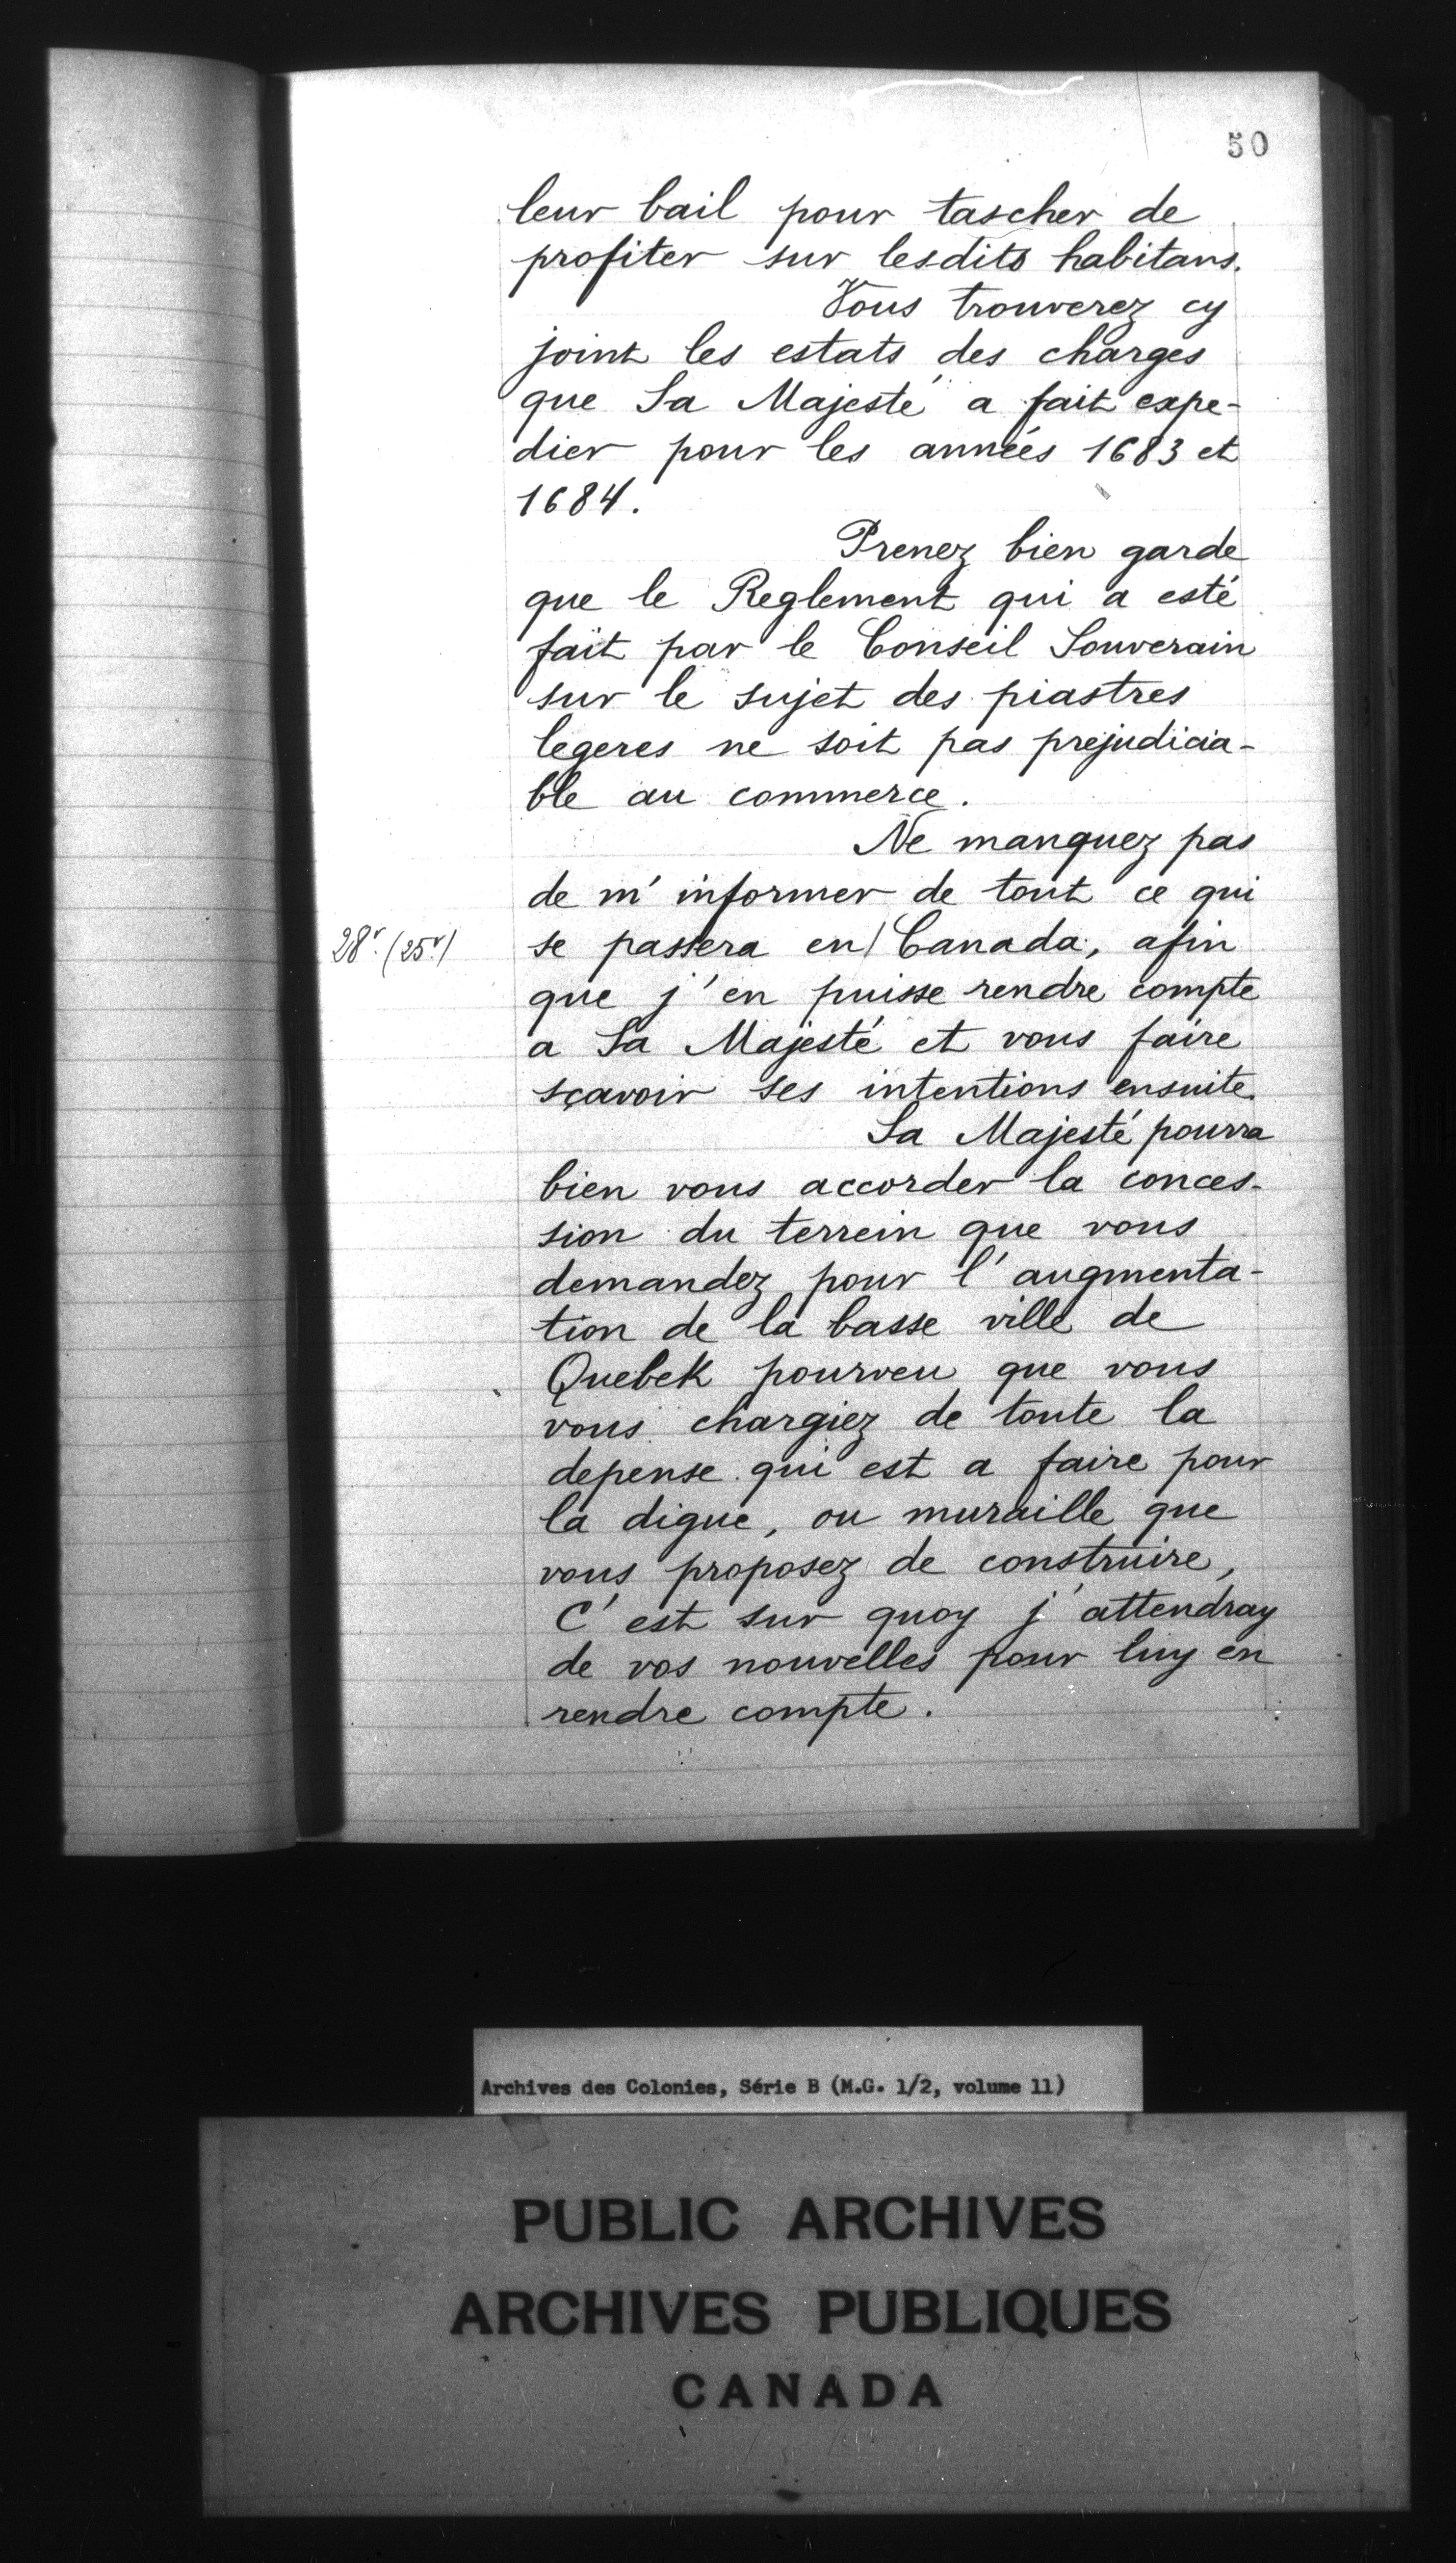 50
leur bail pour tascher de
profiter sur lesdits habitans.
Vous trouverez cy
joint les estats des charges
que Sa Majesté a fait expe-
dier pour les années 1683 et
1684.
Prenez bien garde
que le Reglement qui a esté
fait par le Conseil Souverain
sur le sujet des piastres
legeres ne soit pas prejudicia-
ble au commerce.
Ne manquez pas
de m'informer de tout ce qui
28r. (25r.) se passera en/Canada, afin
que j'en puisse rendre compte
a Sa Majesté et vous faire
sçavoir ses intentions ensuite.
Sa Majesté pourra
bien vous accorder la conces-
sion du terrein que vous
demandez pour l'augmenta-
tion de la basse ville de
Quebek pourveu que vous
vous chargiez de toute la
depense qui est a faire pour
la digue, ou muraille que
vous proposez de construire,
C'est sur quoy j'attendray
de vos nouvelles pour luy en
rendre compte.
Archives des Colonies, Série B (M.G. 1/2, volume 11)
PUBLIC ARCHIVES
ARCHIVES PUBLIQUES
CANADA